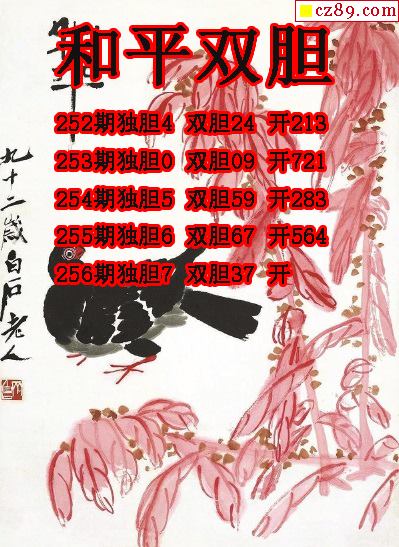 cz89.com
和平双胆
252期独胆4 双胆24 开213
253期独胆0 双胆09 开721
254期独胆5 双胆59 开283
255期独胆6 双胆67 开564
256期独胆7 双胆37 开
九十二岁白石老人